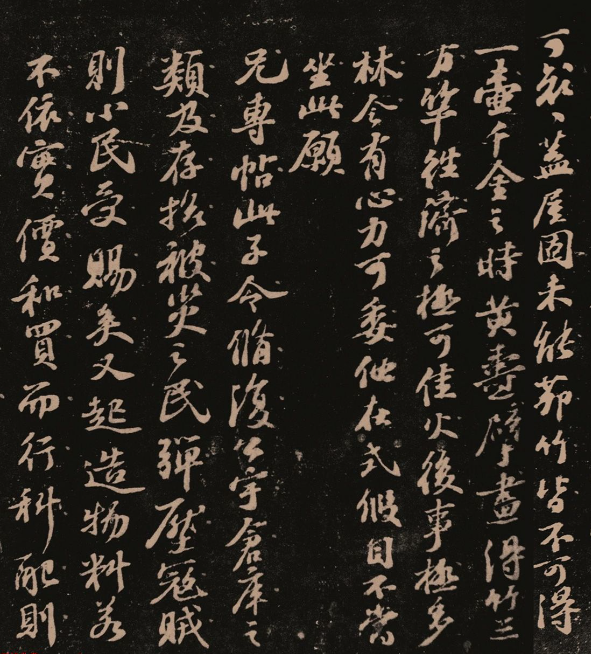 可知〻蓋屋固未能茆竹皆不可得
一壺千金之時黃燾擘畫得竹三
万竿往濟之極可佳火後事極多
林令有心力可委他在式假自不當
坐此願
兄專帖此子令脩復公宇倉庫之
類及存撫被災之民彈壓寇賊
則小民受賜矣又起造物料若
不依實價和買而行科配則